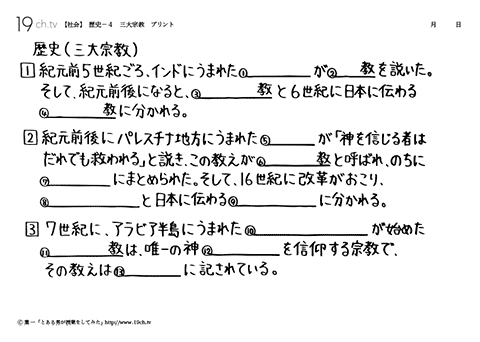 19ch.tv 【社会】 歴史-4 三大宗教 プリント 月 日
歴史(三大宗教)
1 紀元前5世紀ごろ、インドにうまれた①______が②____教を説いた。
そして、紀元前後になると、③______教と6世紀に日本に伝わる
④______教に分かれる。
2 紀元前後にパレスチナ地方にうまれた⑤______が「神を信じる者は
だれでも救われる」と説き、この教えが⑥______教と呼ばれ、のちに
⑦______にまとめられた。そして、16世紀に改革がおこり、
⑧________と日本に伝わる⑨________に分かれる。
3 7世紀に、アラビア半島にうまれた⑩____________が始めた
⑪______教は、唯一の神⑫______を信仰する宗教で、
その教えは⑬______に記されている。
©葉一「とある男が授業をしてみた」http://www.19ch.tv